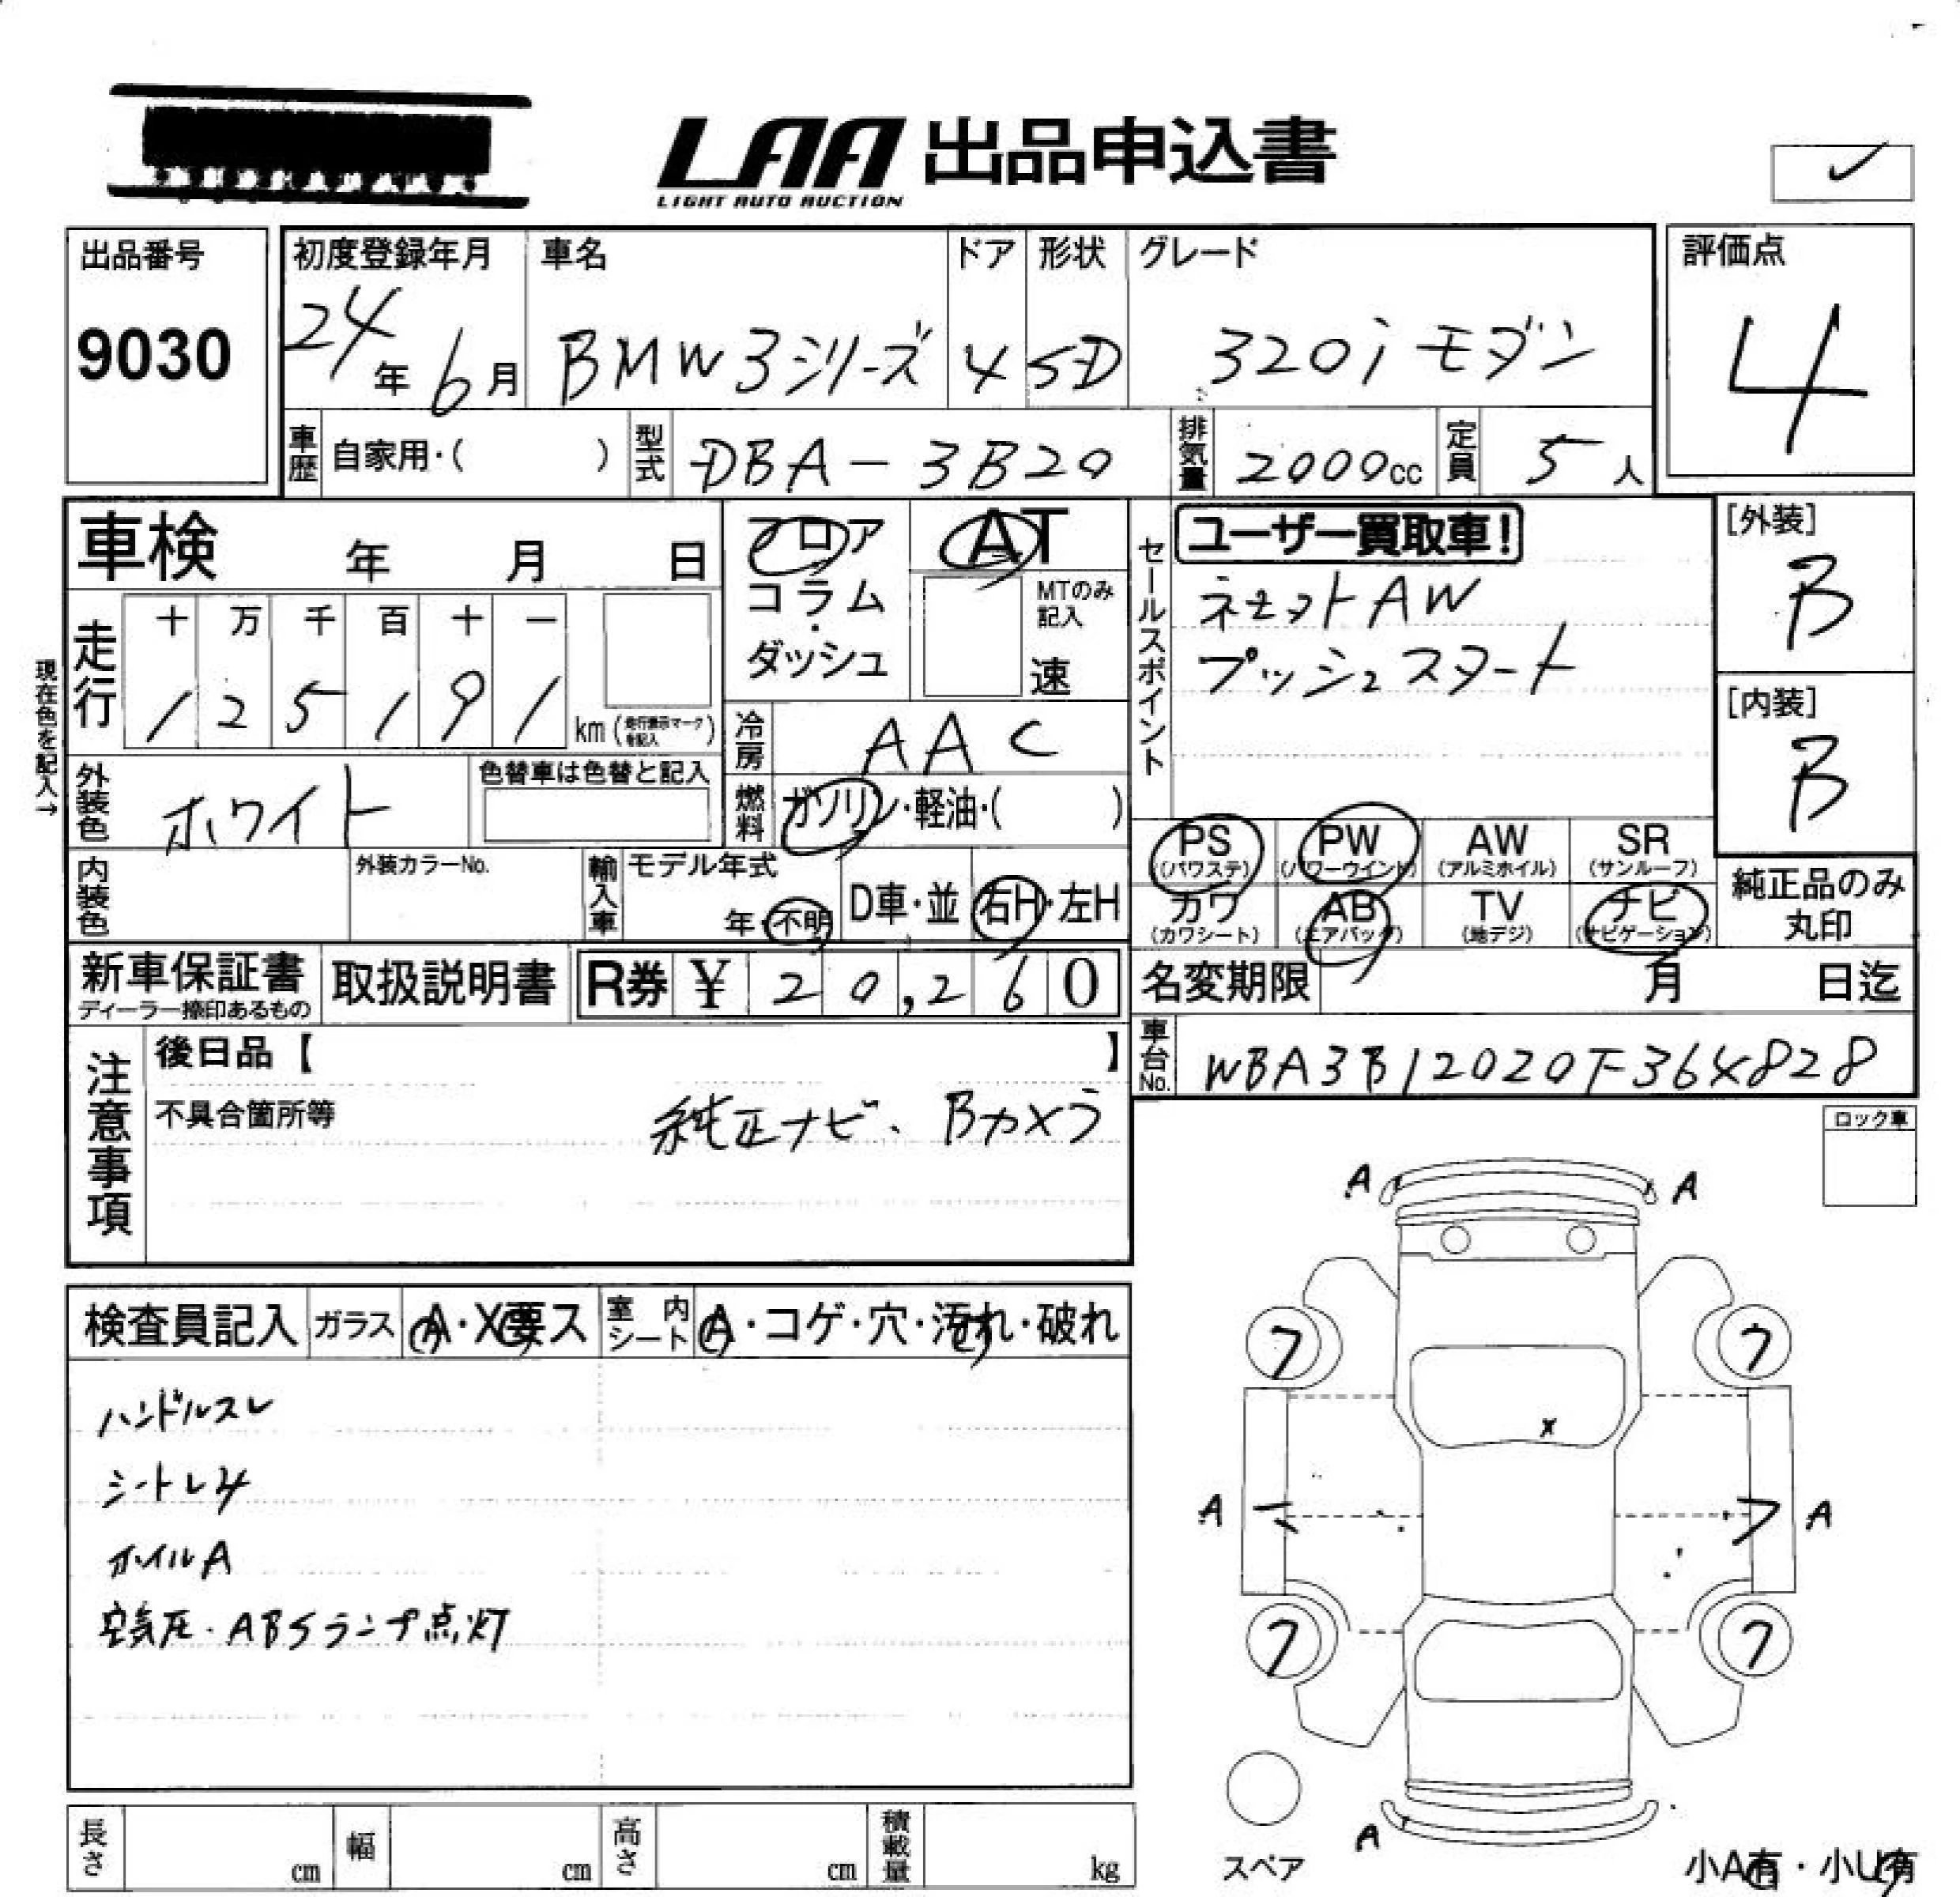 LAA 出品申込書
LIGHT AUTO AUCTION
出品番号 初度登録年月 車名 ドア 形状 グレード 評価点
9030 24年6月 BMW3シリーズ 4 SD 320i モダン 4
車歴 自家用・( ) 型式 DBA-3B20 排気量 2000cc 定員 5人
車検 年 月 日 フロア AT セールスポイント ユーザー買取車! [外装]
コラム・ MTのみ記入 ネセットAW B
ダッシュ 速 プッシュスタート
走行 十 万 千 百 十 一
1 2 5 1 9 1 km (走行表示マークを記入) [内装]
現在色を記入→
冷房 AAC B
外装色 ホワイト 色替車は色替と記入 燃料 ガソリン・軽油・( )
PS (パワステ) PW (パワーウインド) AW (アルミホイル) SR (サンルーフ) 純正品のみ丸印
内装色 外装カラーNo. 輸入車 モデル年式 年・不明 D車・並 右H・左H
カワ (カワシート) AB (エアバッグ) TV (地デジ) ナビ (ナビゲーション)
新車保証書 ディーラー捺印あるもの 取扱説明書 R券 ¥ 20,260 名変期限 月 日迄
車台No. WBA3B12020F364828
注意事項 後日品【 】
不具合箇所等 純正ナビ、Bカメラ
ロック車
検査員記入 ガラス A・X要ス 室内シート A・コゲ・穴・汚れ・破れ
ハンドルスレ
シートレ
ホイルA
空気圧・ABSランプ点灯
A A
7 7
X
A A
7 7
A
スペア 小A有・小U有
長さ cm 幅 cm 高さ cm 積載量 kg